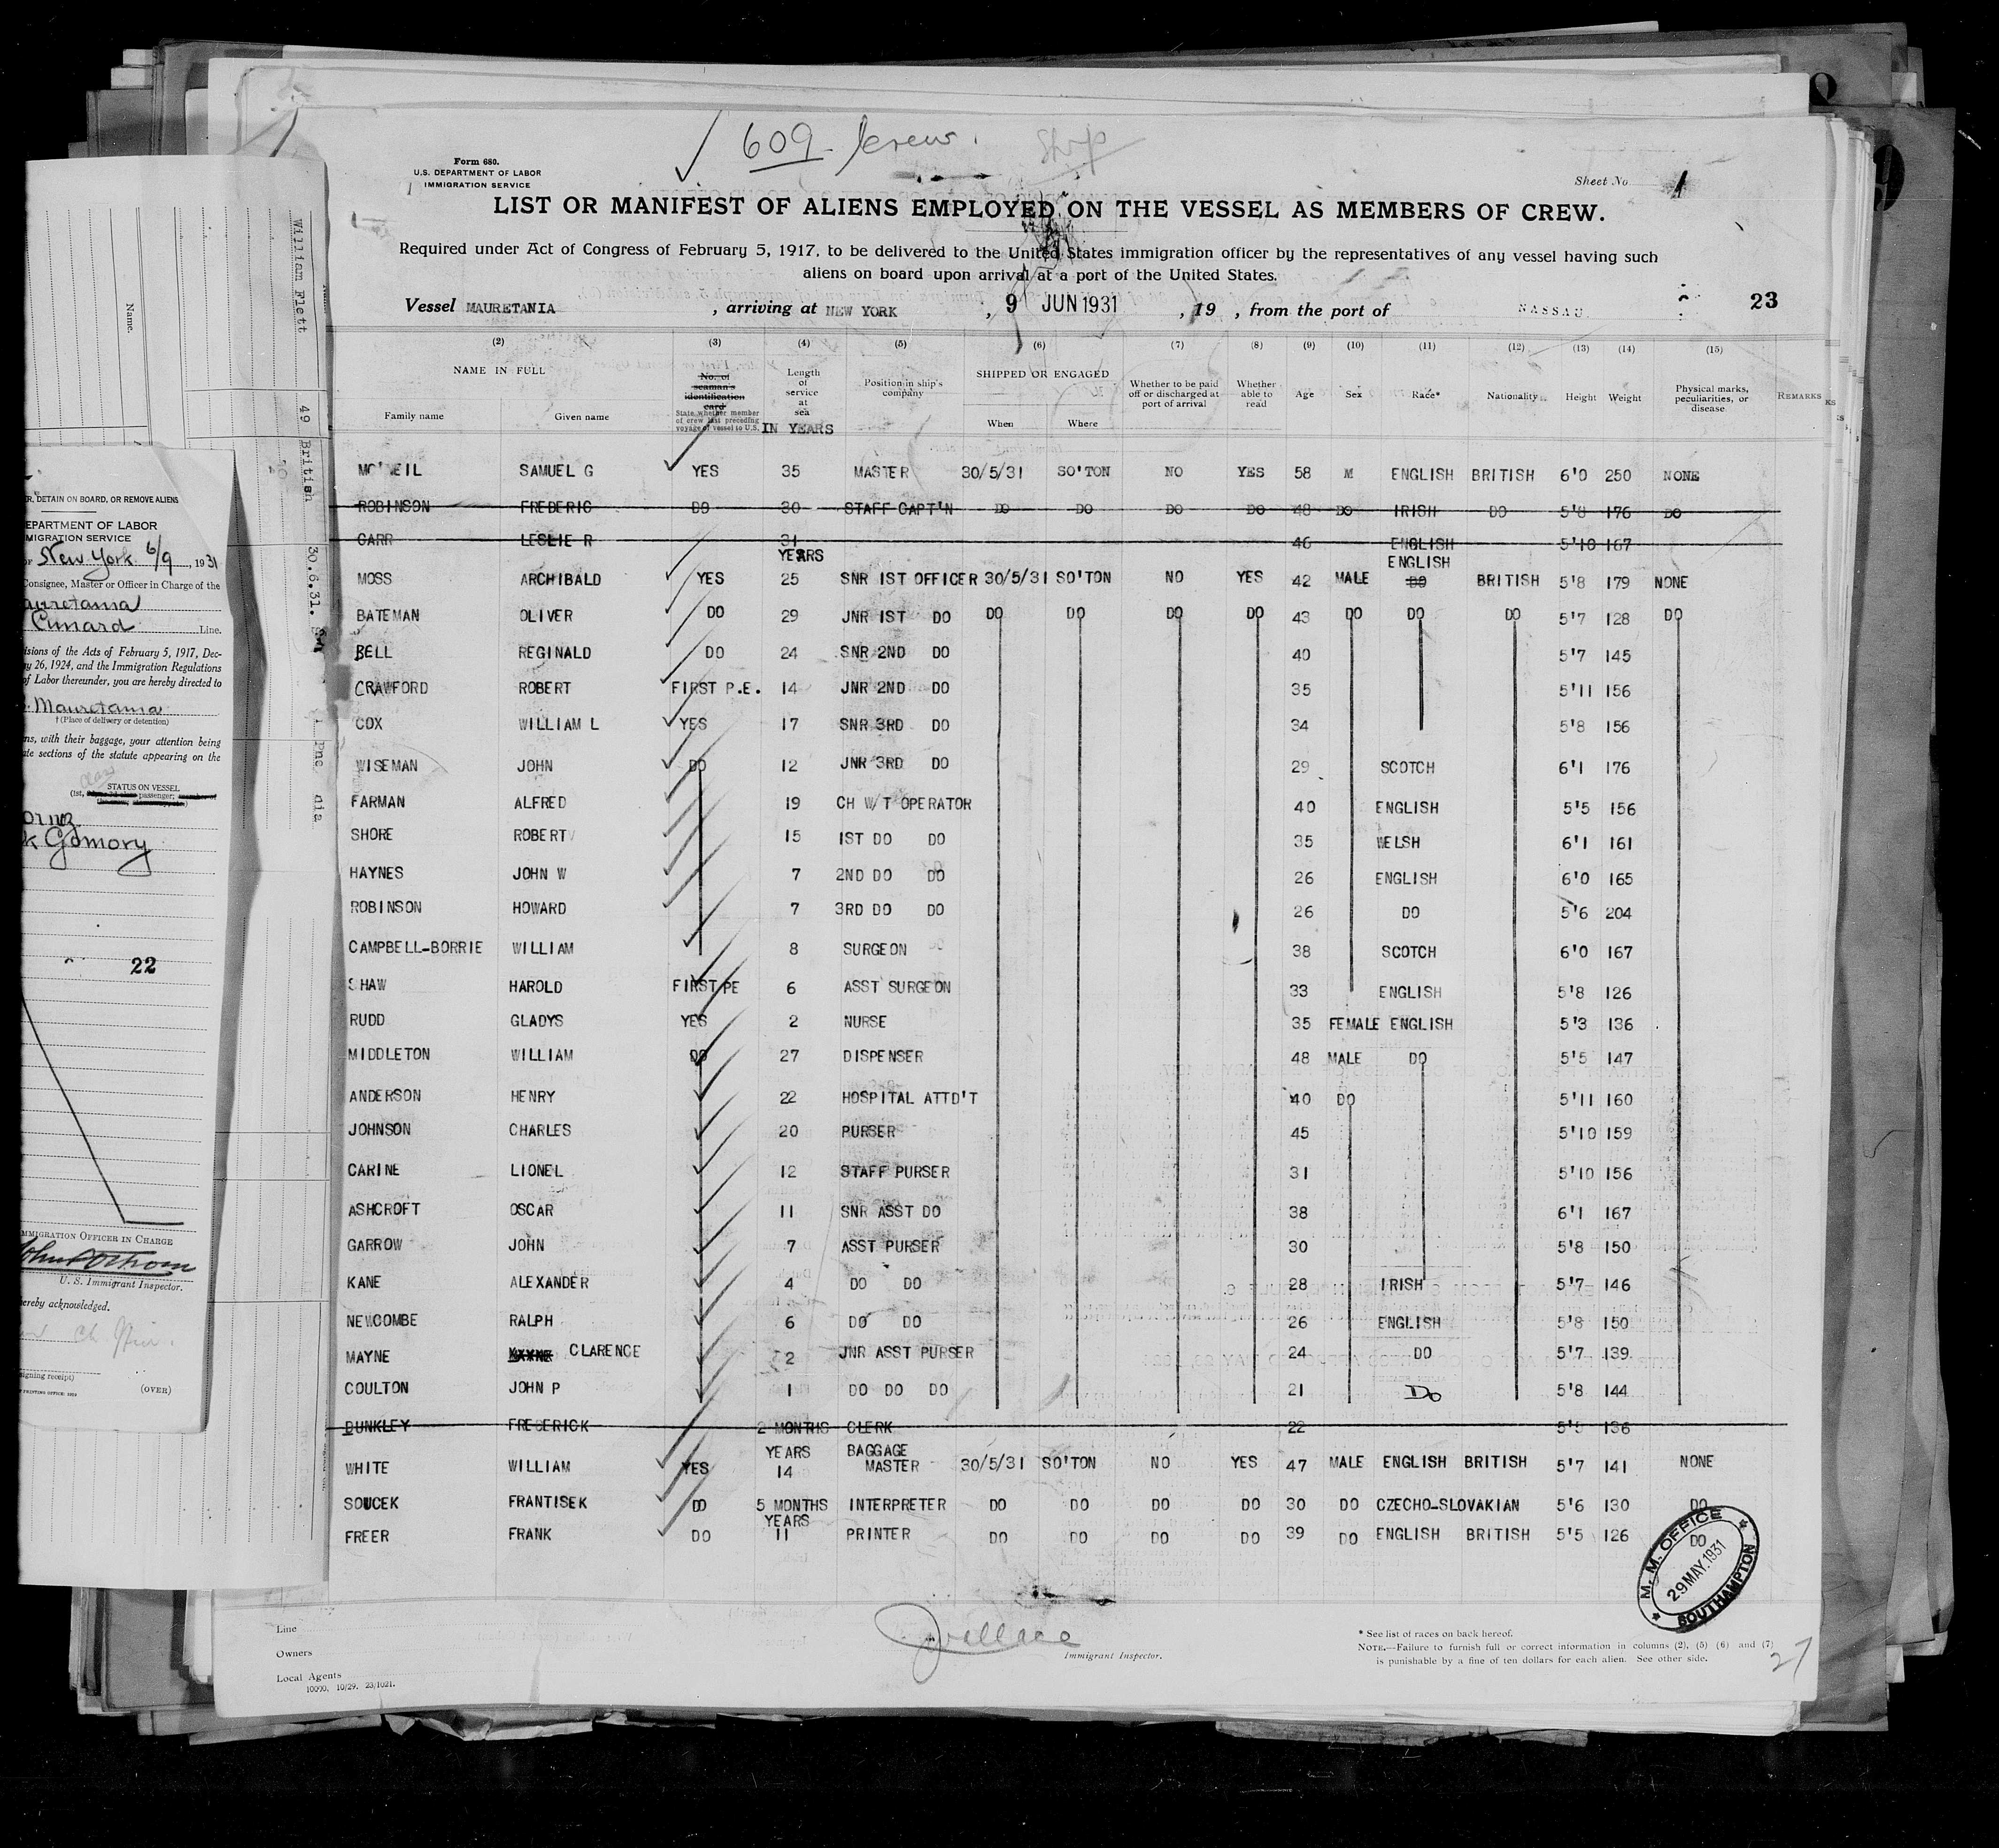 609 Crew. Ship
Form 680.
U.S. DEPARTMENT OF LABOR
IMMIGRATION SERVICE
Sheet No 1
LIST OR MANIFEST OF ALIENS EMPLOYED ON THE VESSEL AS MEMBERS OF CREW.
Required under Act of Congress of February 5, 1917, to be delivered to the United States immigration officer by the representatives of any vessel having such
aliens on board upon arrival at a port of the United States.
Vessel MAURETANIA , arriving at NEW YORK , 9 JUN 1931 , 19 , from the port of NASSAU 23
(2) (3) (4) (5) (6) (7) (8) (9) (10) (11) (12) (13) (14) (15)
NAME IN FULL
Family name Given name
No. of seaman's identification card
State whether member of crew last preceding voyage of vessel to U.S.
Length of service at sea
IN YEARS
Position in ship's company
SHIPPED OR ENGAGED
When Where
Whether to be paid off or discharged at port of arrival
Whether able to read
Age Sex Race* Nationality Height Weight
Physical marks, peculiarities, or disease
REMARKS
MC'NEIL SAMUEL G YES 35 MASTER 30/5/31 SO'TON NO YES 58 M ENGLISH BRITISH 6'0 250 NONE
ROBINSON FREDERIC DO 30 STAFF CAPT'N DO DO DO DO 48 DO IRISH DO 5'8 176 DO
CARR LESLIE R 31 46 ENGLISH 5'10 167
YEARS ENGLISH
MOSS ARCHIBALD YES 25 SNR IST OFFICER 30/5/31 SO'TON NO YES 42 MALE DO BRITISH 5'8 179 NONE
BATEMAN OLIVER DO 29 JNR IST DO DO DO DO DO 43 DO DO DO 5'7 128 DO
BELL REGINALD DO 24 SNR 2ND DO 40 5'7 145
CRAWFORD ROBERT FIRST P.E. 14 JNR 2ND DO 35 5'11 156
COX WILLIAM L YES 17 SNR 3RD DO 34 5'8 156
WISEMAN JOHN DO 12 JNR 3RD DO 29 SCOTCH 6'1 176
FARMAN ALFRED 19 CH W/T OPERATOR 40 ENGLISH 5'5 156
SHORE ROBERT 15 IST DO DO 35 WELSH 6'1 161
HAYNES JOHN W 7 2ND DO DO 26 ENGLISH 6'0 165
ROBINSON HOWARD 7 3RD DO DO 26 DO 5'6 204
CAMPBELL-BORRIE WILLIAM 8 SURGEON 38 SCOTCH 6'0 167
SHAW HAROLD FIRST PE 6 ASST SURGEON 33 ENGLISH 5'8 126
RUDD GLADYS YES 2 NURSE 35 FEMALE ENGLISH 5'3 136
MIDDLETON WILLIAM DO 27 DISPENSER 48 MALE DO 5'5 147
ANDERSON HENRY 22 HOSPITAL ATTD'T 40 DO 5'11 160
JOHNSON CHARLES 20 PURSER 45 5'10 159
CARINE LIONEL 12 STAFF PURSER 31 5'10 156
ASHCROFT OSCAR 11 SNR ASST DO 38 6'1 167
GARROW JOHN 7 ASST PURSER 30 5'8 150
KANE ALEXANDER 4 DO DO 28 IRISH 5'7 146
NEWCOMBE RALPH 6 DO DO 26 ENGLISH 5'8 150
MAYNE CLARENCE 2 JNR ASST PURSER 24 DO 5'7 139
COULTON JOHN P 1 DO DO DO 21 Do 5'8 144
DUNKLEY FREDERICK 2 MONTHS CLERK 22 5'5 136
YEARS BAGGAGE
WHITE WILLIAM YES 14 MASTER 30/5/31 SO'TON NO YES 47 MALE ENGLISH BRITISH 5'7 141 NONE
SOUCEK FRANTISEK DO 5 MONTHS INTERPRETER DO DO DO DO 30 DO CZECHO-SLOVAKIAN 5'6 130 DO
YEARS
FREER FRANK DO 11 PRINTER DO DO DO DO 39 DO ENGLISH BRITISH 5'5 126 DO
M. M. OFFICE
29 MAY. 1931
SOUTHAMPTON
Line
Owners
Local Agents
10090, 10/29. 23/1021.
Immigrant Inspector.
* See list of races on back hereof.
NOTE.—Failure to furnish full or correct information in columns (2), (5) (6) and (7)
is punishable by a fine of ten dollars for each alien. See other side.
27
William Flett 49 British 30.6.31.
Name.
R, DETAIN ON BOARD, OR REMOVE ALIENS
EPARTMENT OF LABOR
MIGRATION SERVICE
New York 6/9, 1931
Consignee, Master or Officer in Charge of the
auretania
Cunard Line.
isions of the Acts of February 5, 1917, Dec-
y 26, 1924, and the Immigration Regulations
of Labor thereunder, you are hereby directed to
Mauretania
† (Place of delivery or detention)
ns, with their baggage, your attention being
ate sections of the statute appearing on the
STATUS ON VESSEL
(1st, passenger;
Gomory
22
MMIGRATION OFFICER IN CHARGE
U. S. Immigrant Inspector.
hereby acknowledged.
igning receipt)
(OVER)